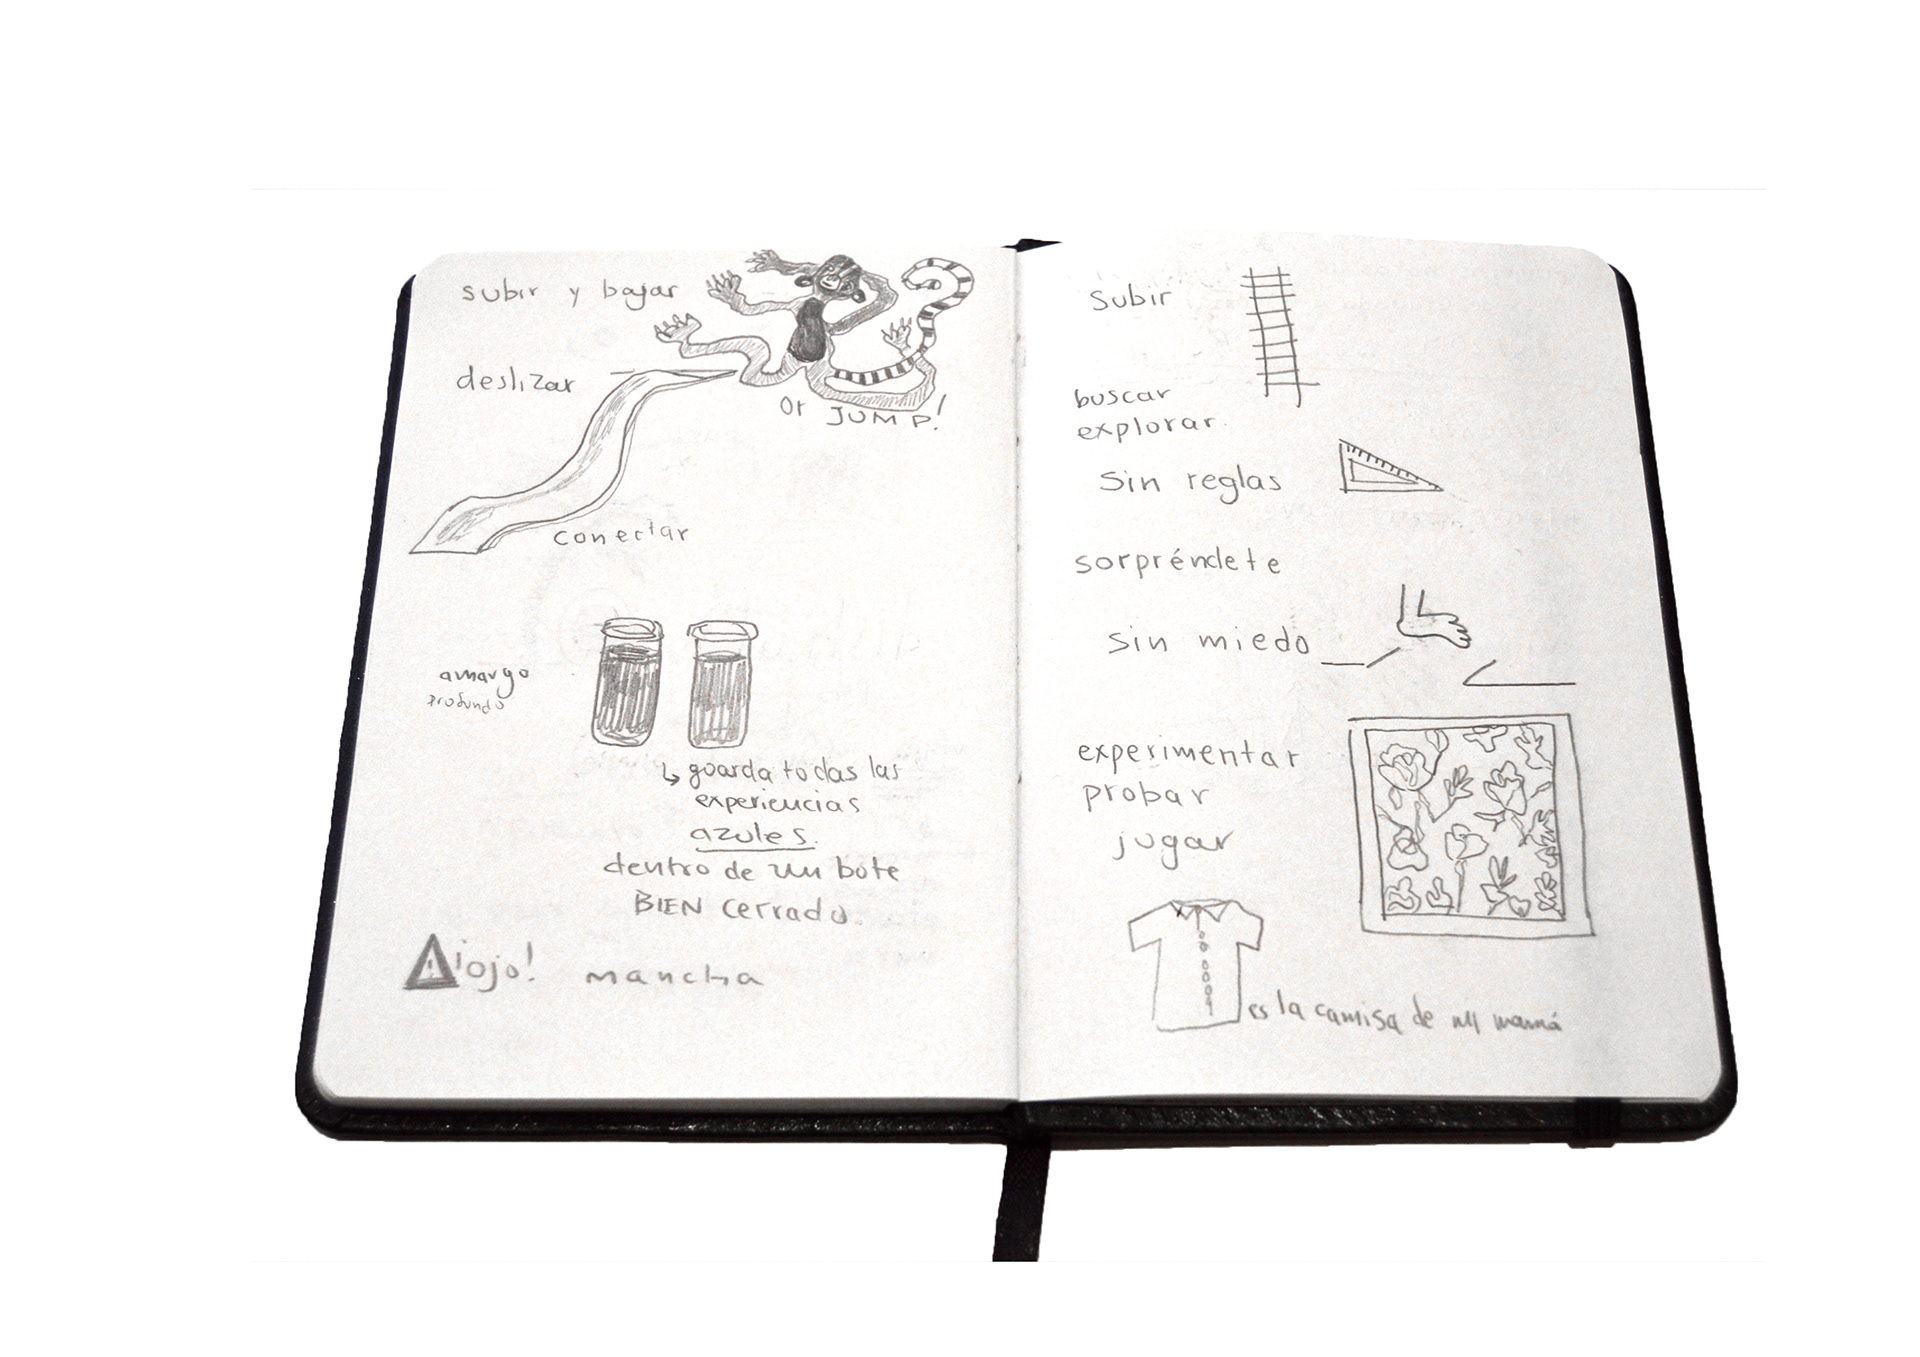 subir y bajar
deslizar
or JUMP!
conectar
amargo
profundo
↳ guarda todas las
experiencias
azules.
dentro de un bote
BIEN cerrado.
¡ojo! mancha
subir
buscar
explorar
sin reglas
sorpréndete
sin miedo
experimentar
probar
jugar
es la camisa de mi mamá